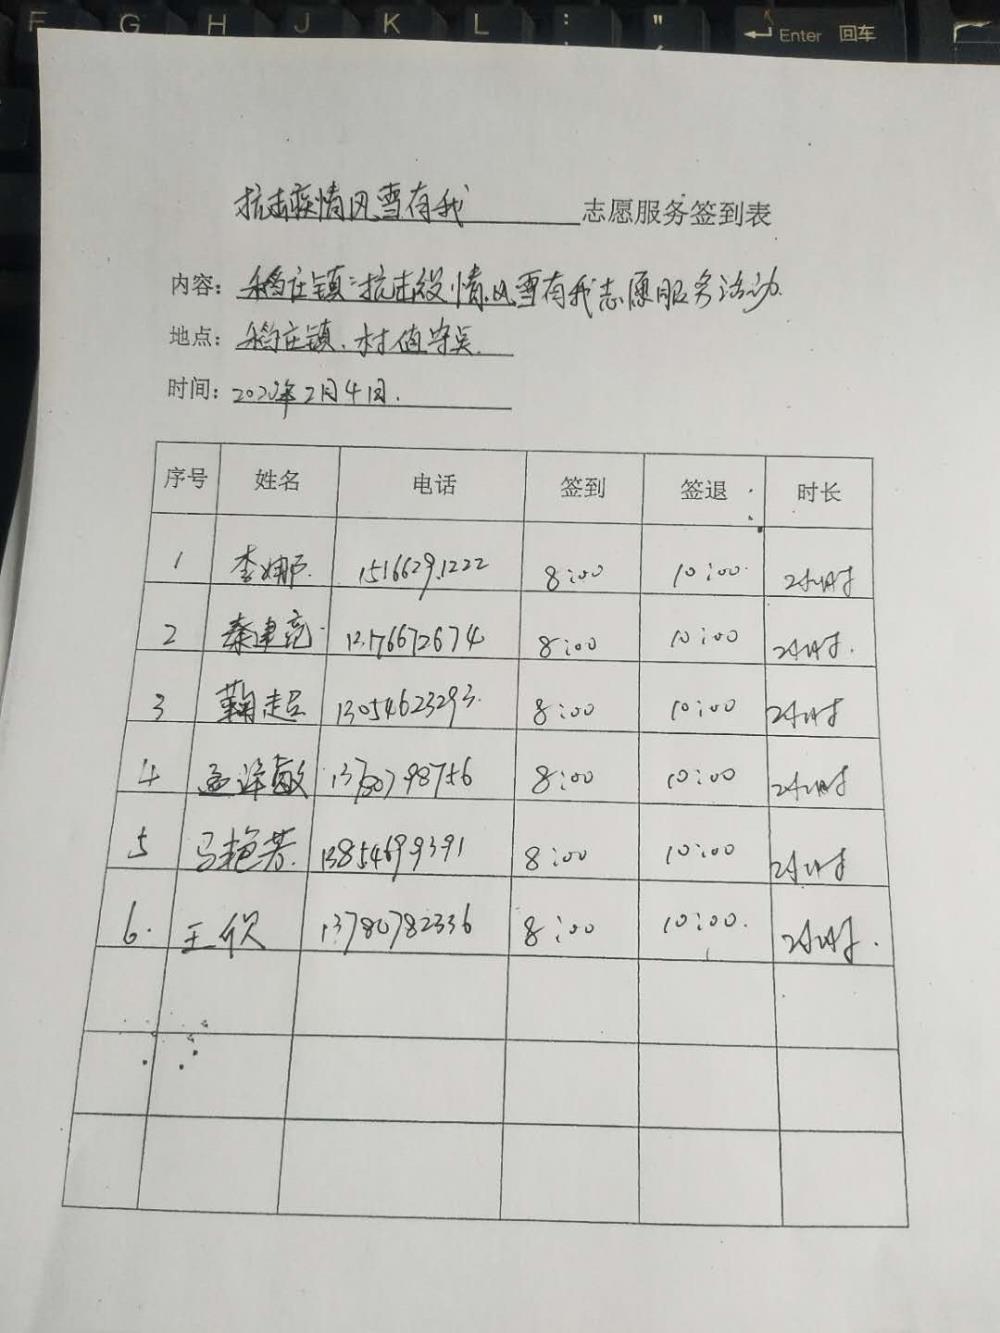 F G H J K L : ; " Enter 回车
抗击疫情风雪有我 志愿服务签到表
内容: 稻庄镇"抗击疫情.风雪有我志愿服务活动
地点: 稻庄镇.村值守点.
时间: 2022年2月4日.
序号 姓名 电话 签到 签退 时长
1 李娜 15166291222 8:00 10:00 2小时
2 秦建亮 8:00 10:00 2小时.
3 鞠超 13054623293. 8:00 10:00 2小时
4 8:00 10:00 2小时
5 马艳芳. 13854699391 8:00 10:00 2小时
6. 王欣 13780782336 8:00 10:00. 2小时.